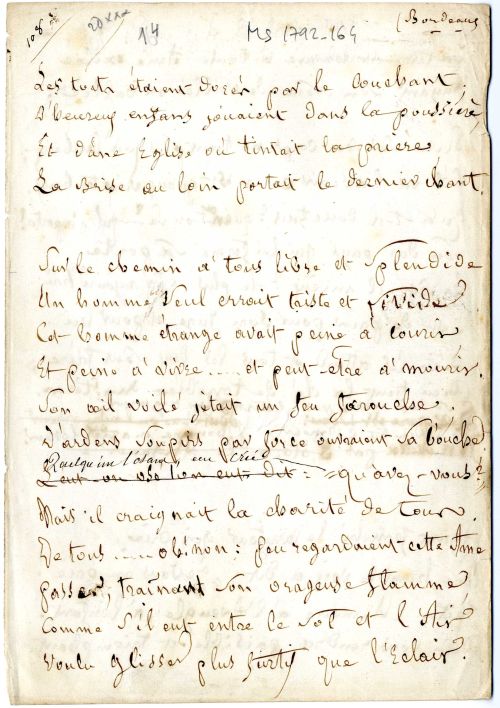 108
20xxx
14
MS 1792-164
(Bordeaux
Les toits étaient dorés par le couchant;
D'heureux enfans jouaient dans la poussière,
Et d'une Eglise où tintait la prière,
La Brise au loin portait le dernier chant.
Sur le chemin à tous libre et splendide
Un homme seul errait triste et livide
Cet homme étrange avait peine à courir,
Et peine à vivre..... et peut-être à mourir.
Son œil voilé jetait un feu farouche.
D'ardens soupirs par force ouvraient sa bouche
Quelqu'un l'osant, eut crié
L'eut-on osé l'on eut dit: = qu'avez-vous?
Mais il craignait la charité de tous.
De tous ..... oh! non: peu regardaient cette Ame
passer, traînant son orageuse flamme
Comme s'il eut entre le Sol et l'Air
voulu glisser plus furtif que l'Eclair.